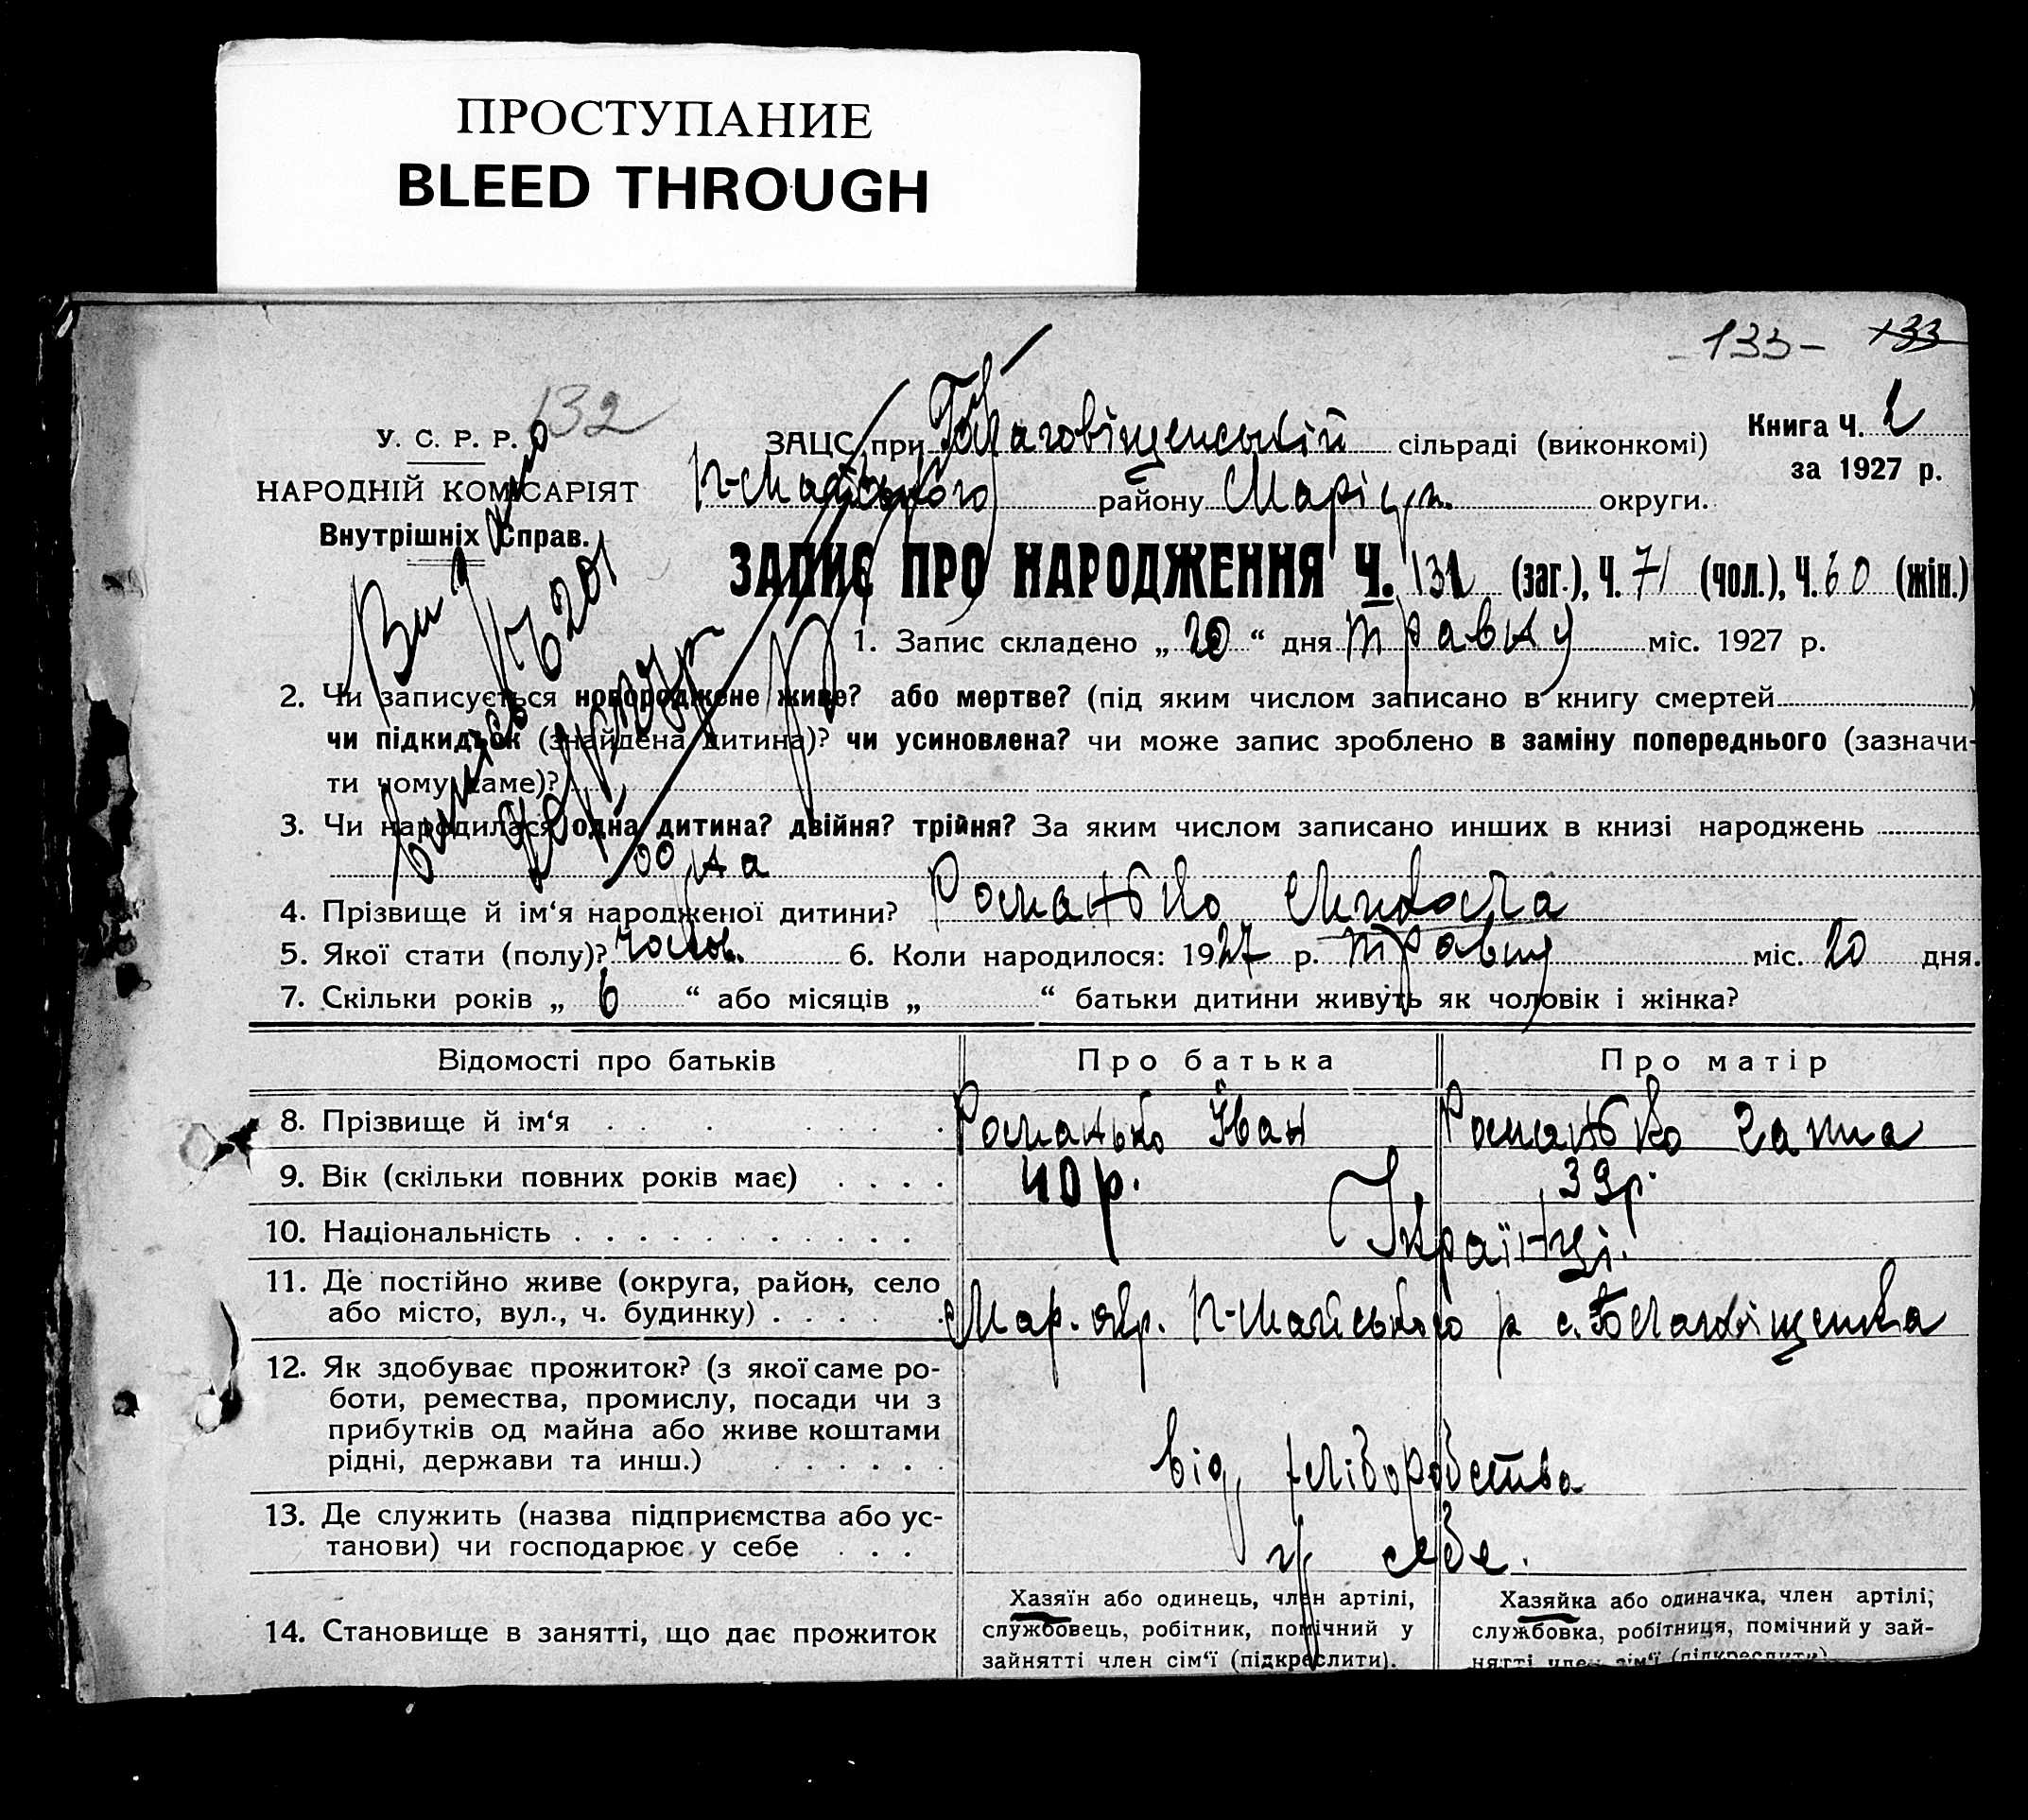 ПРОСТУПАНИЕ
BLEED THROUGH
-133- 133
132
У. С. Р. Р.
НАРОДНІЙ КОМІСАРІЯТ
Внутрішніх Справ.
ЗАЦС при Благовіщенській сільраді (виконкомі)
Книга Ч. 2
за 1927 р.
П-Майського району Маріуп. округи.
ЗАПИС ПРО НАРОДЖЕННЯ Ч. 131 (заг.), Ч. 71 (чол.), Ч. 60 (жін.)
1. Запис складено „ 20 “ дня травня міс. 1927 р.
2. Чи записується новороджене живе? або мертве? (під яким числом записано в книгу смертей )
чи підкидьок (знайдена дитина)? чи усиновлена? чи може запис зроблено в заміну попереднього (зазначи-
ти чому саме)?
3. Чи народилася одна дитина? двійня? трійня? За яким числом записано инших в книзі народжень
одна
4. Прізвище й ім‘я народженої дитини? Романько Микола
5. Якої стати (полу)? чолов. 6. Коли народилося: 1927 р. травня міс. 20 дня.
7. Скільки років „ 6 “ або місяців „ “ батьки дитини живуть як чоловік і жінка?
Відомості про батьків Про батька Про матір
8. Прізвище й ім‘я Романько Іван Романько Гапка
9. Вік (скільки повних років має) 40 р. 39 р.
10. Національність Українці.
11. Де постійно живе (округа, район, село
або місто, вул., ч. будинку) Мар. окр. П-Майського р с. Благовіщенка
12. Як здобуває прожиток? (з якої саме ро-
боти, ремества, промислу, посади чи з
прибутків од майна або живе коштами
рідні, держави та инш.) від хліборобства
13. Де служить (назва підприємства або ус-
танови) чи господарює у себе у себе.
14. Становище в занятті, що дає прожиток
Хазяїн або одинець, член артілі,
службовець, робітник, помічний у
зайнятті член сім‘ї (підкреслити).
Хазяйка або одиначка, член артілі,
службовка, робітниця, помічний у зай-
нятті член сім‘ї (підкреслити)